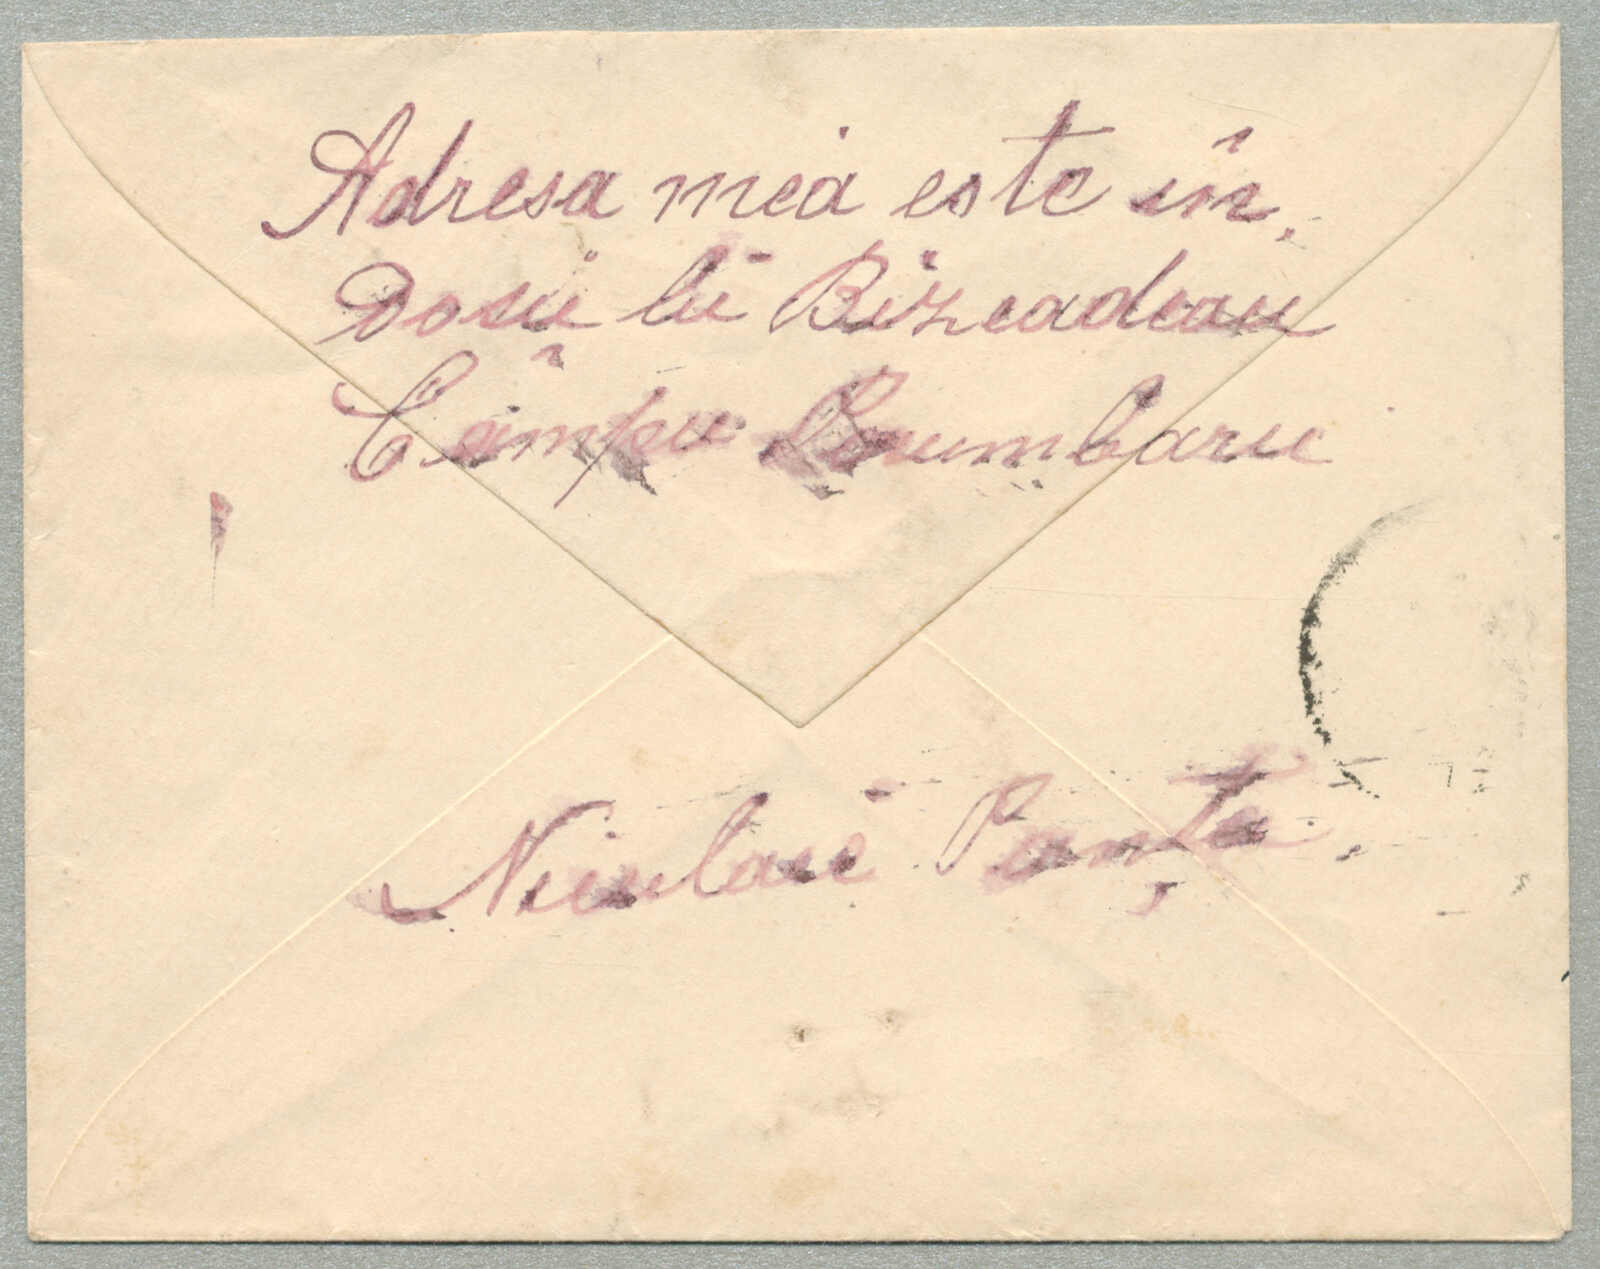 Adresa mea este în
Dosu lui Bizeadeau
Câmpu Porumbaru
Niculaie Panța